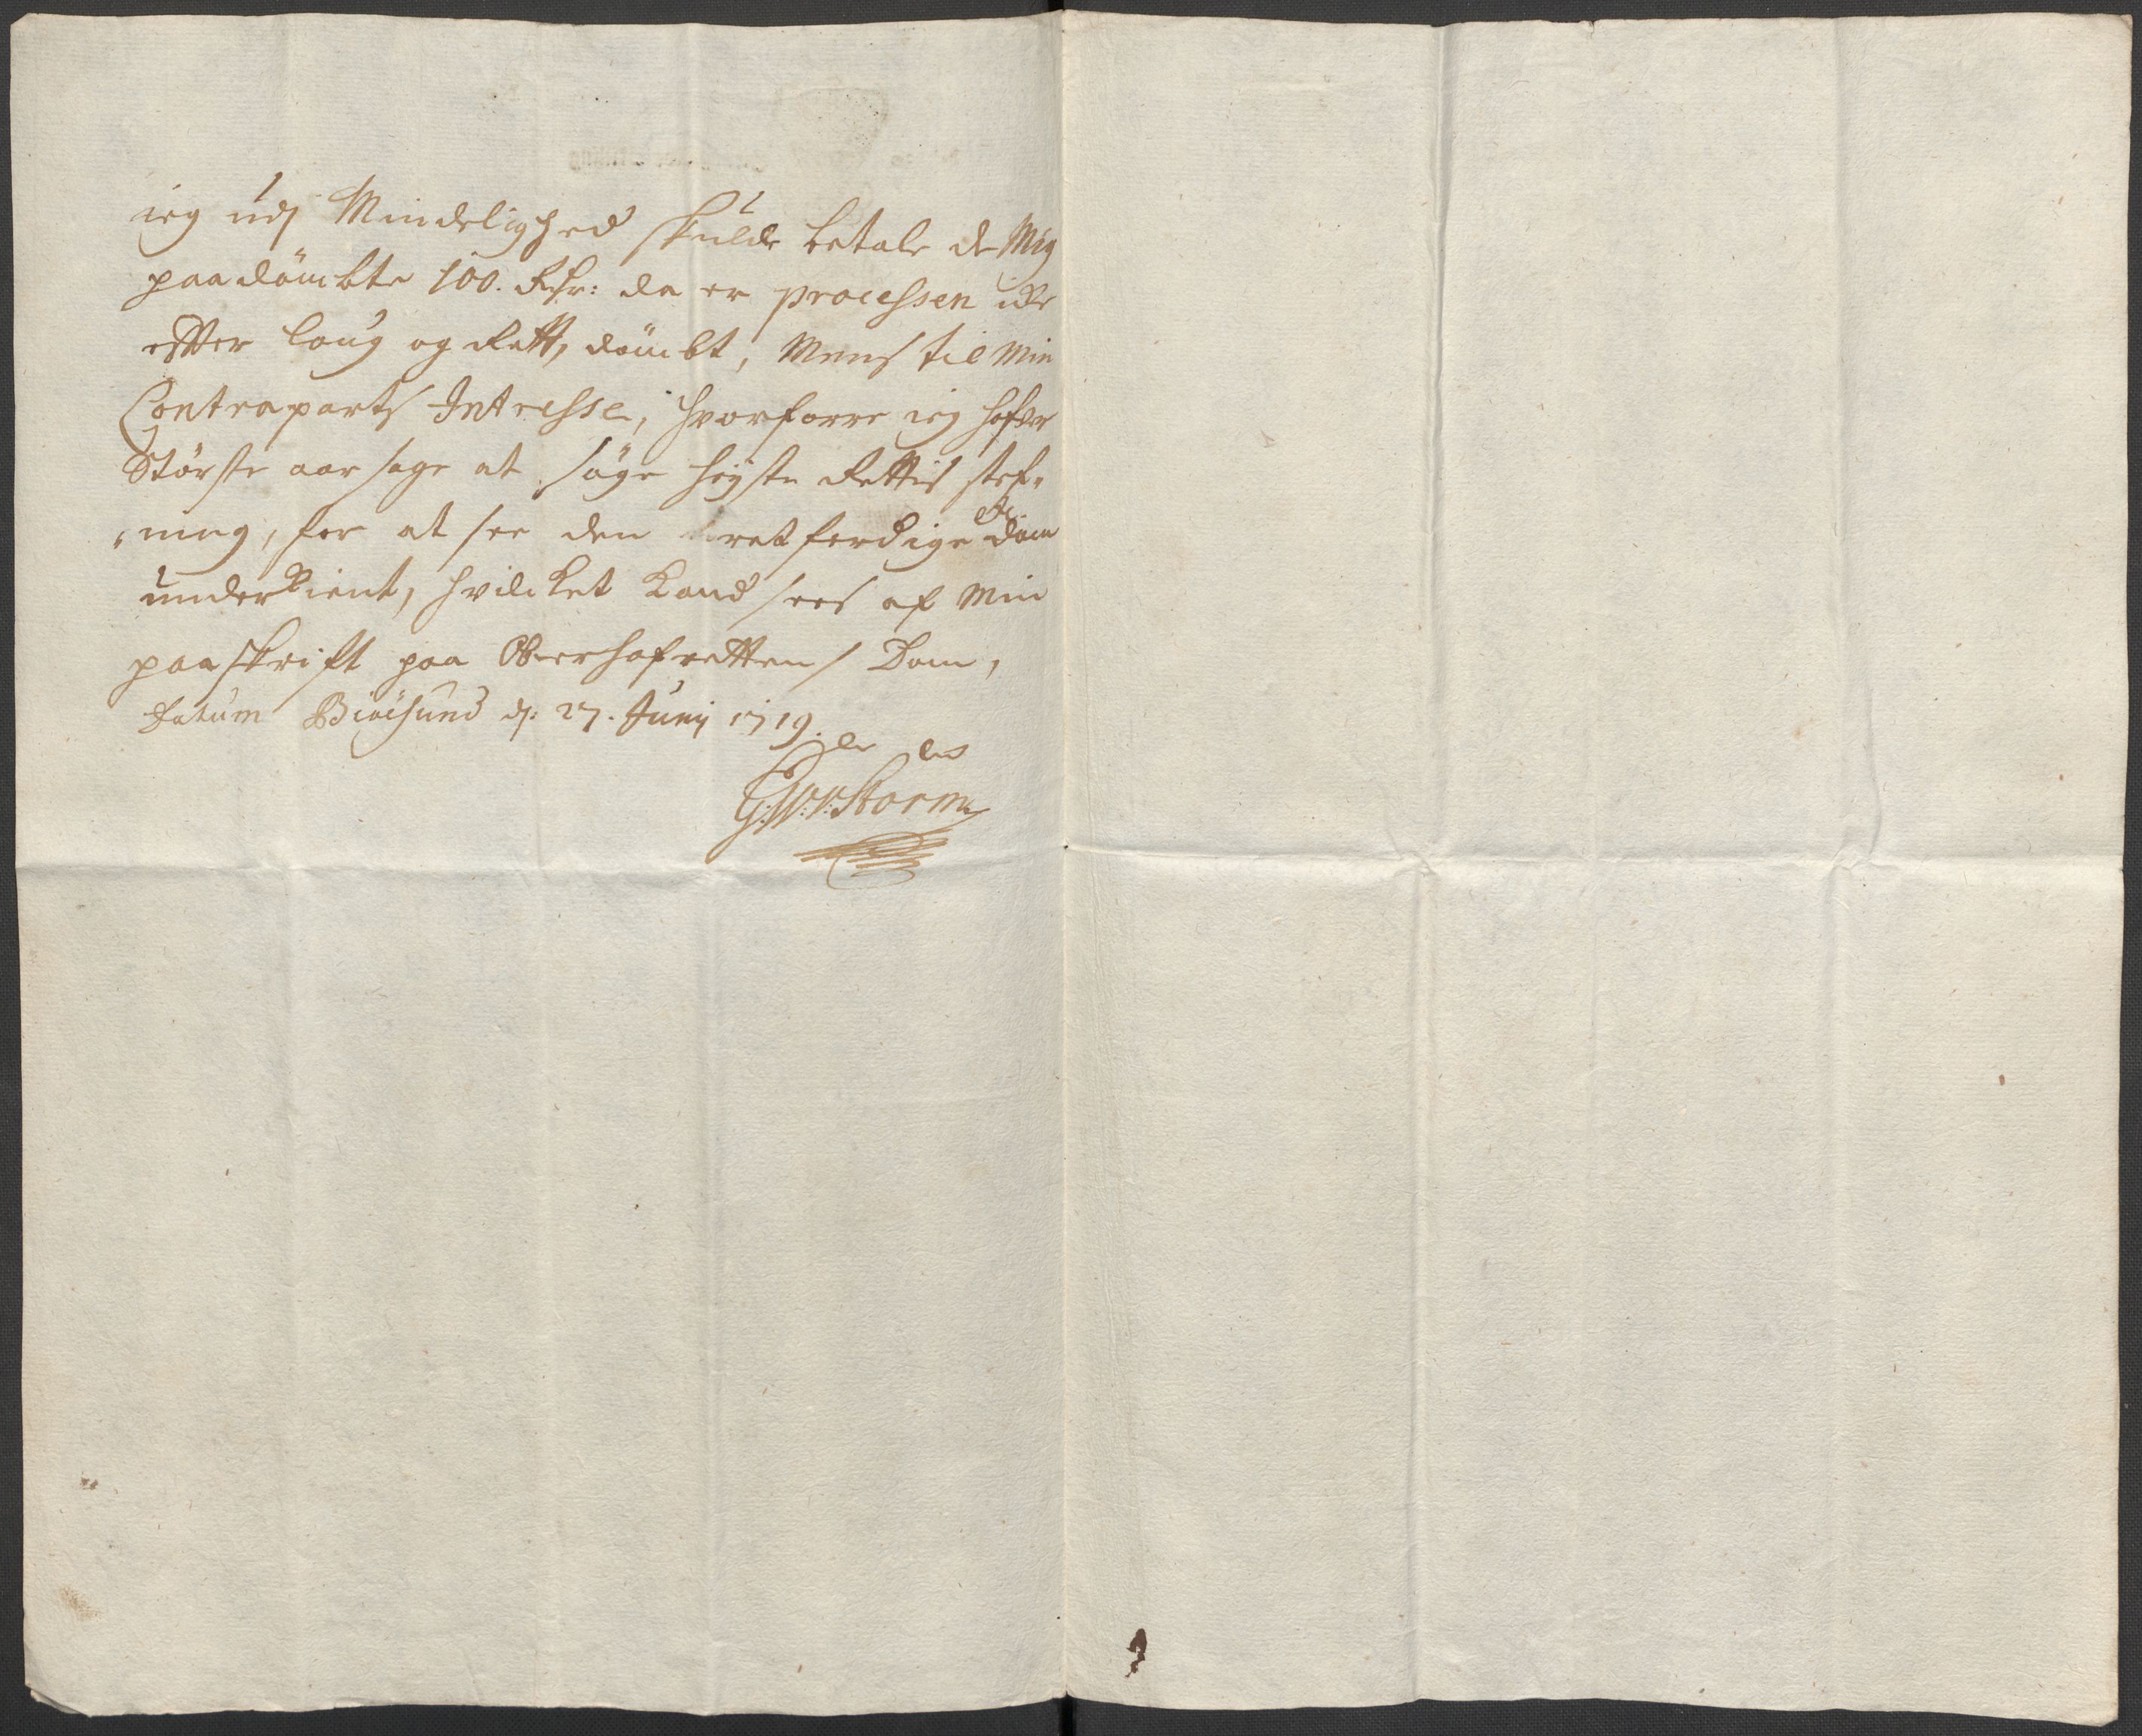 ieg udj Mindelighed skulde betale de Mig
paadömbte 100. Rdr: da er processen icke
effter loug og Rett, dömbt, Mens til Min
Contraparts Intresse, hvorforre ieg hafver
Störste aarsage at söge höyste Rettis stef„
„ning, for at see den uretferdige Dom
underkient, hvilcket kand sees af Min
paaskrift paa Oberhofrettens Dom,
Datum Biöesund dj: 27. Junij 1719.
G: W: v: Storm